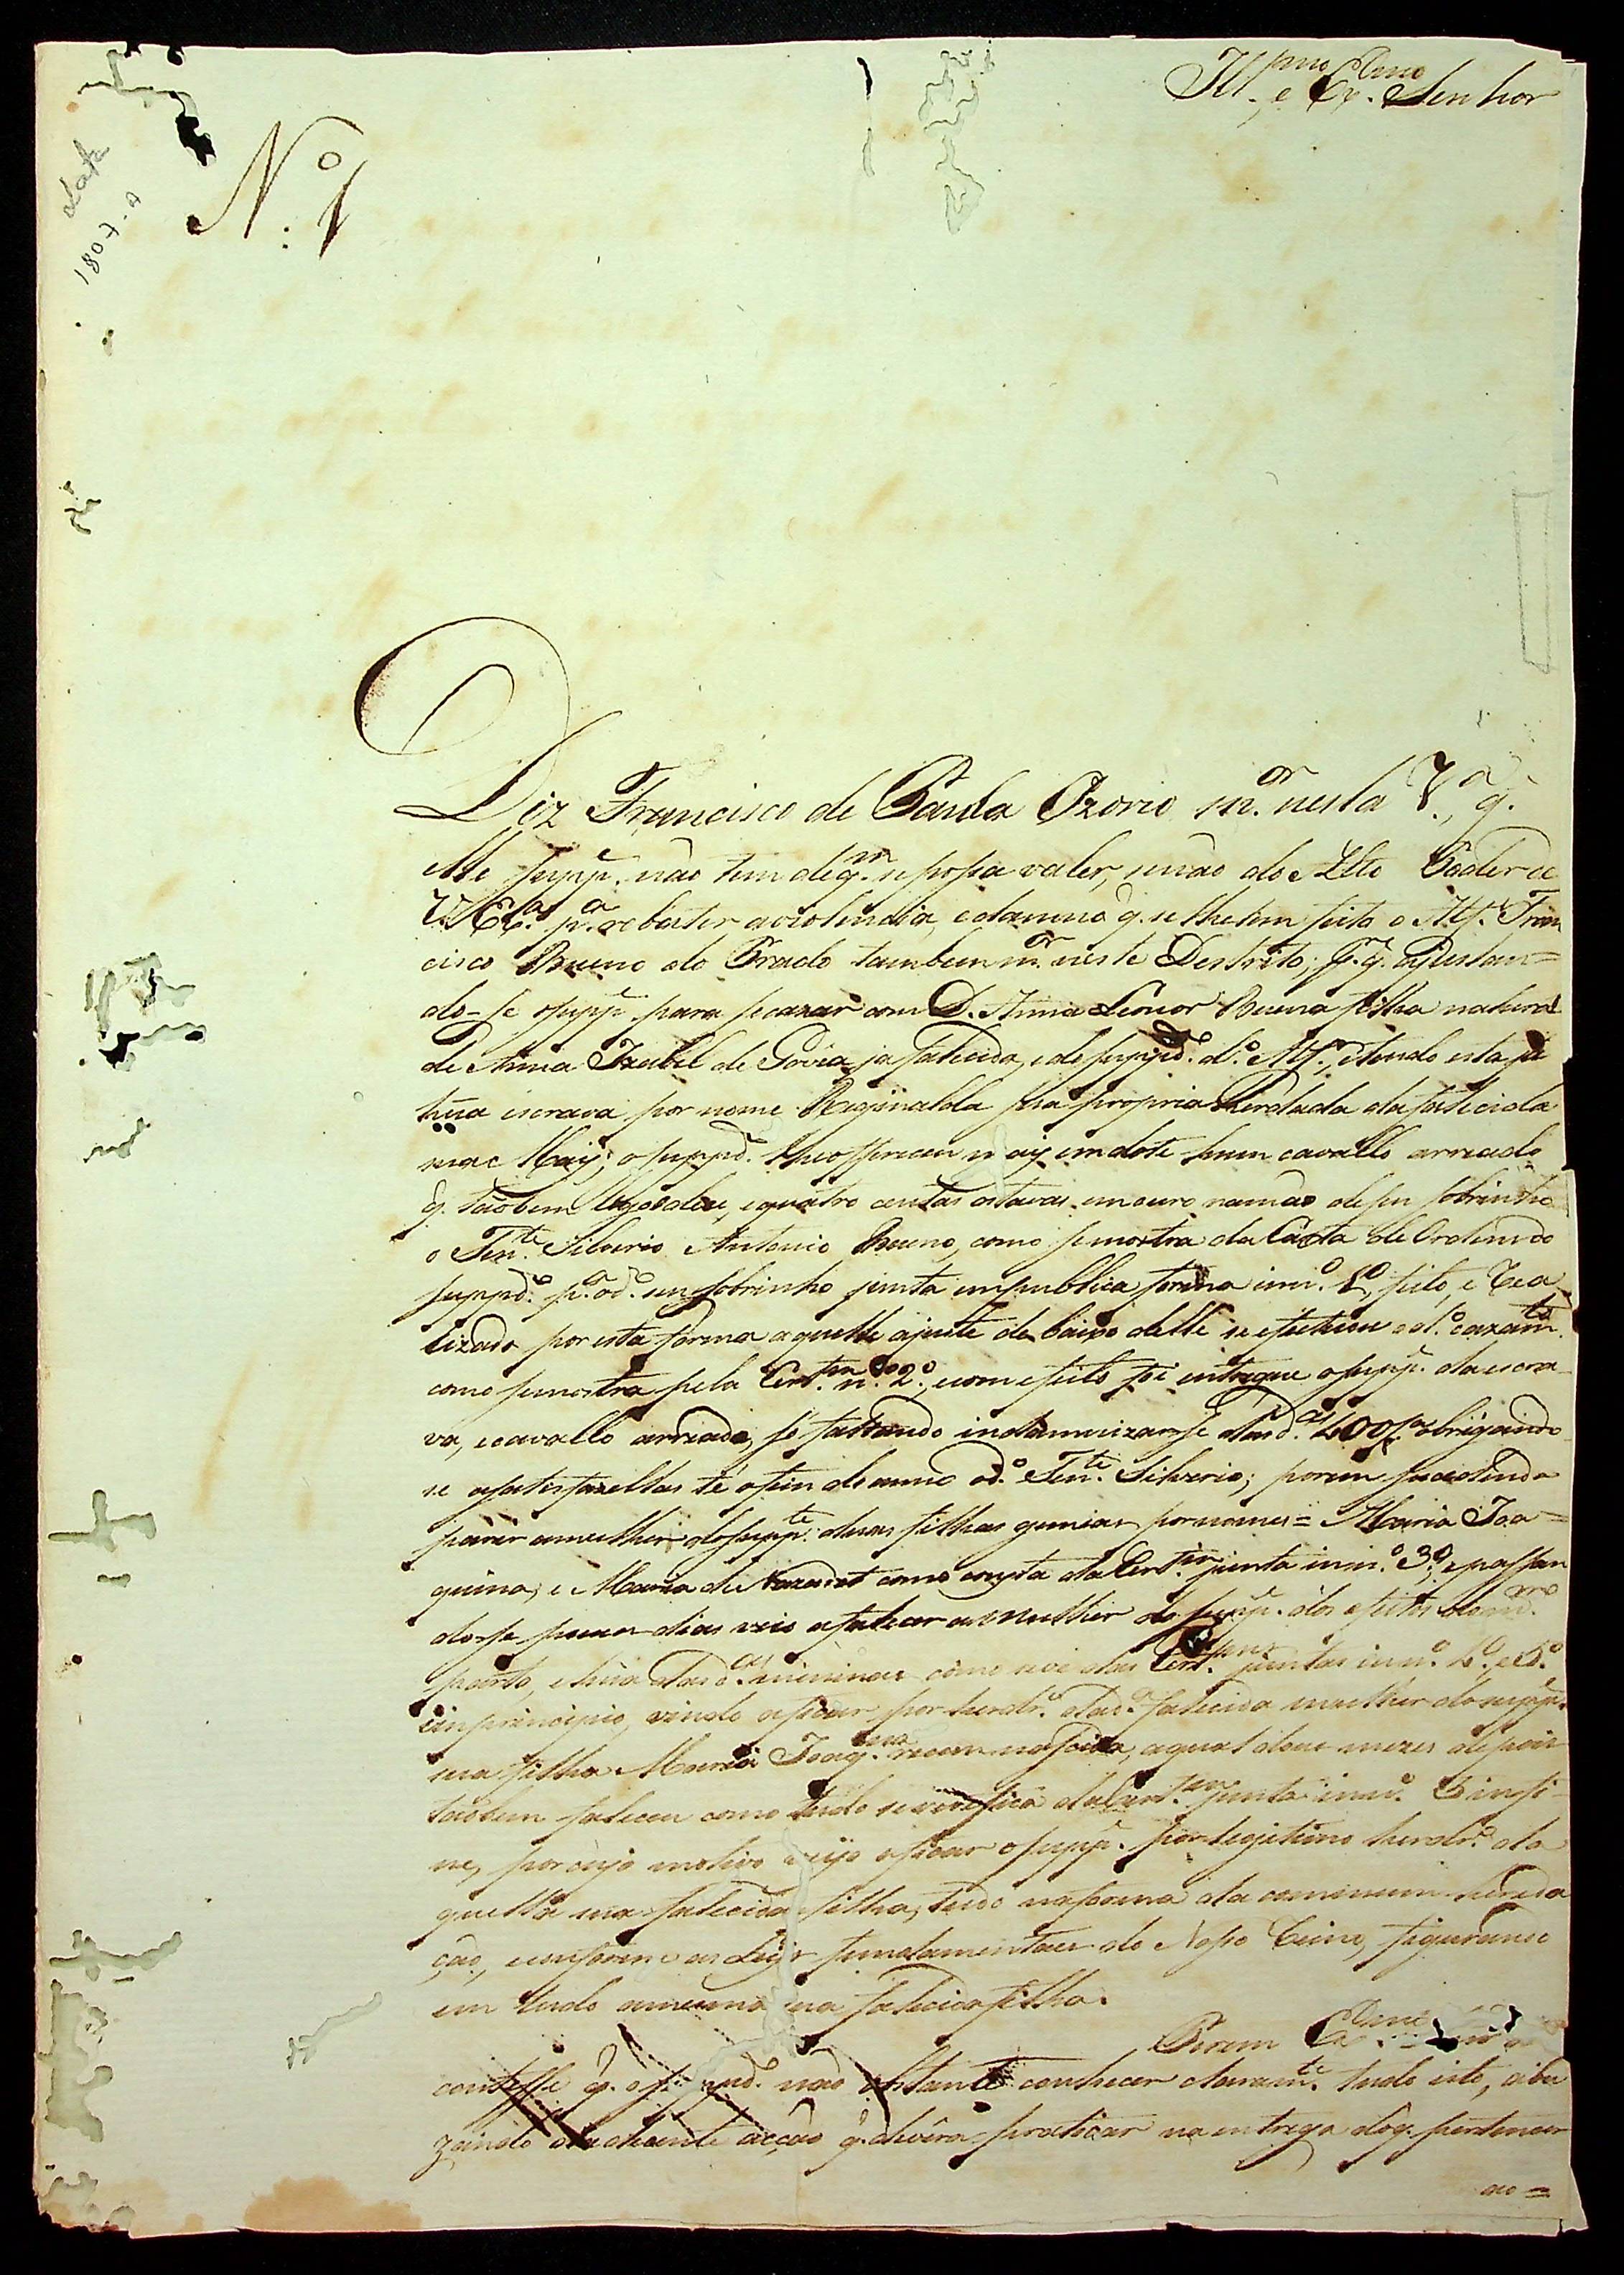 Ill.mo e Ex.mo Senhor
N.º 1
Data
1807-9
Diz Francisco de Paula Ozorio m.or nesta V.ª q.
elle supp.e não tem de q.m se possa valer, senão do Alto Poder de
V. Ex.ª p.ª rebater a violencia, e damno q. se lhe tem feito o Alf.s Fran
cisco Bueno do Prado tambem m.or neste Destrito; p.r q. ajustan=
do-se o supp.e para se cazar com D. Anna Leonor Buena filha natural
de Anna Izabel de Govea ja falecida, e do supp.do d.º Alf.s, e tendo esta ja
hũa escrava por nome Reginalda sua propria herdada da falecida
sua May; o supp.do lhe ofereceu em dote hum cavallo arriado
q. tãobem logo deu, e quatro centas oitavas em ouro na mão de seu sobrinho
o Ten.te Silverio Antonio Bueno, como se mostra da Carta de Ordem do
supp.do p.ª o d.º seu sobrinho junta em publica forma in n.º 1.º, feito, e rea
lizado por esta forma aquelle ajuste debaixo delle se efetuou o d.º cazam.to
como se mostra pela Cert.am n.º 2.º, e com efeito foi entregue o supp.e da escra
va, e cavallo arriado, só faltando indamnizar-se das d.as 400/8.as obrigando
se a satisfazellas té o fim do anno o d.º Ten.te Silverio; porem sucedendo
parir a mulher do supp.te duas filhas gemias por nomes = Maria Joa=
quina, e Maria de Nazaret como consta da Cert.am junta in n.º 3.º, e passan
do-se poucos dias veio a falecer a mulher do supp.e dos efeitos do m.mo
parto, e hũa das d.as meninas como se vê das Cert.oens juntas in n.º 4.º e 5.º
in principio, vindo a ficar por herdr.ª da d.ª falecida mulher do supp.e
sua filha Maria Joaq.na recem nascida, a qual dous mezes depois
tãobem faleceu como tudo se verefica da Cert.am junta in n.º 5 in fi-
ne, por cujo motivo veyo a ficar o supp.e por legitimo herdr.º da
quella sua falecida filha, tudo na forma da commum hereda
ção, e conforme as Leys fundamentaes do Nosso Reino, figurando
em tudo a mesma sua falecida filha.
Porem Ex.mo
q. o supp.do não obstante conhecer claram.te tudo isto, abu
zando da decente acção q. devêra praticar na entrega do q. pertencer
ao =